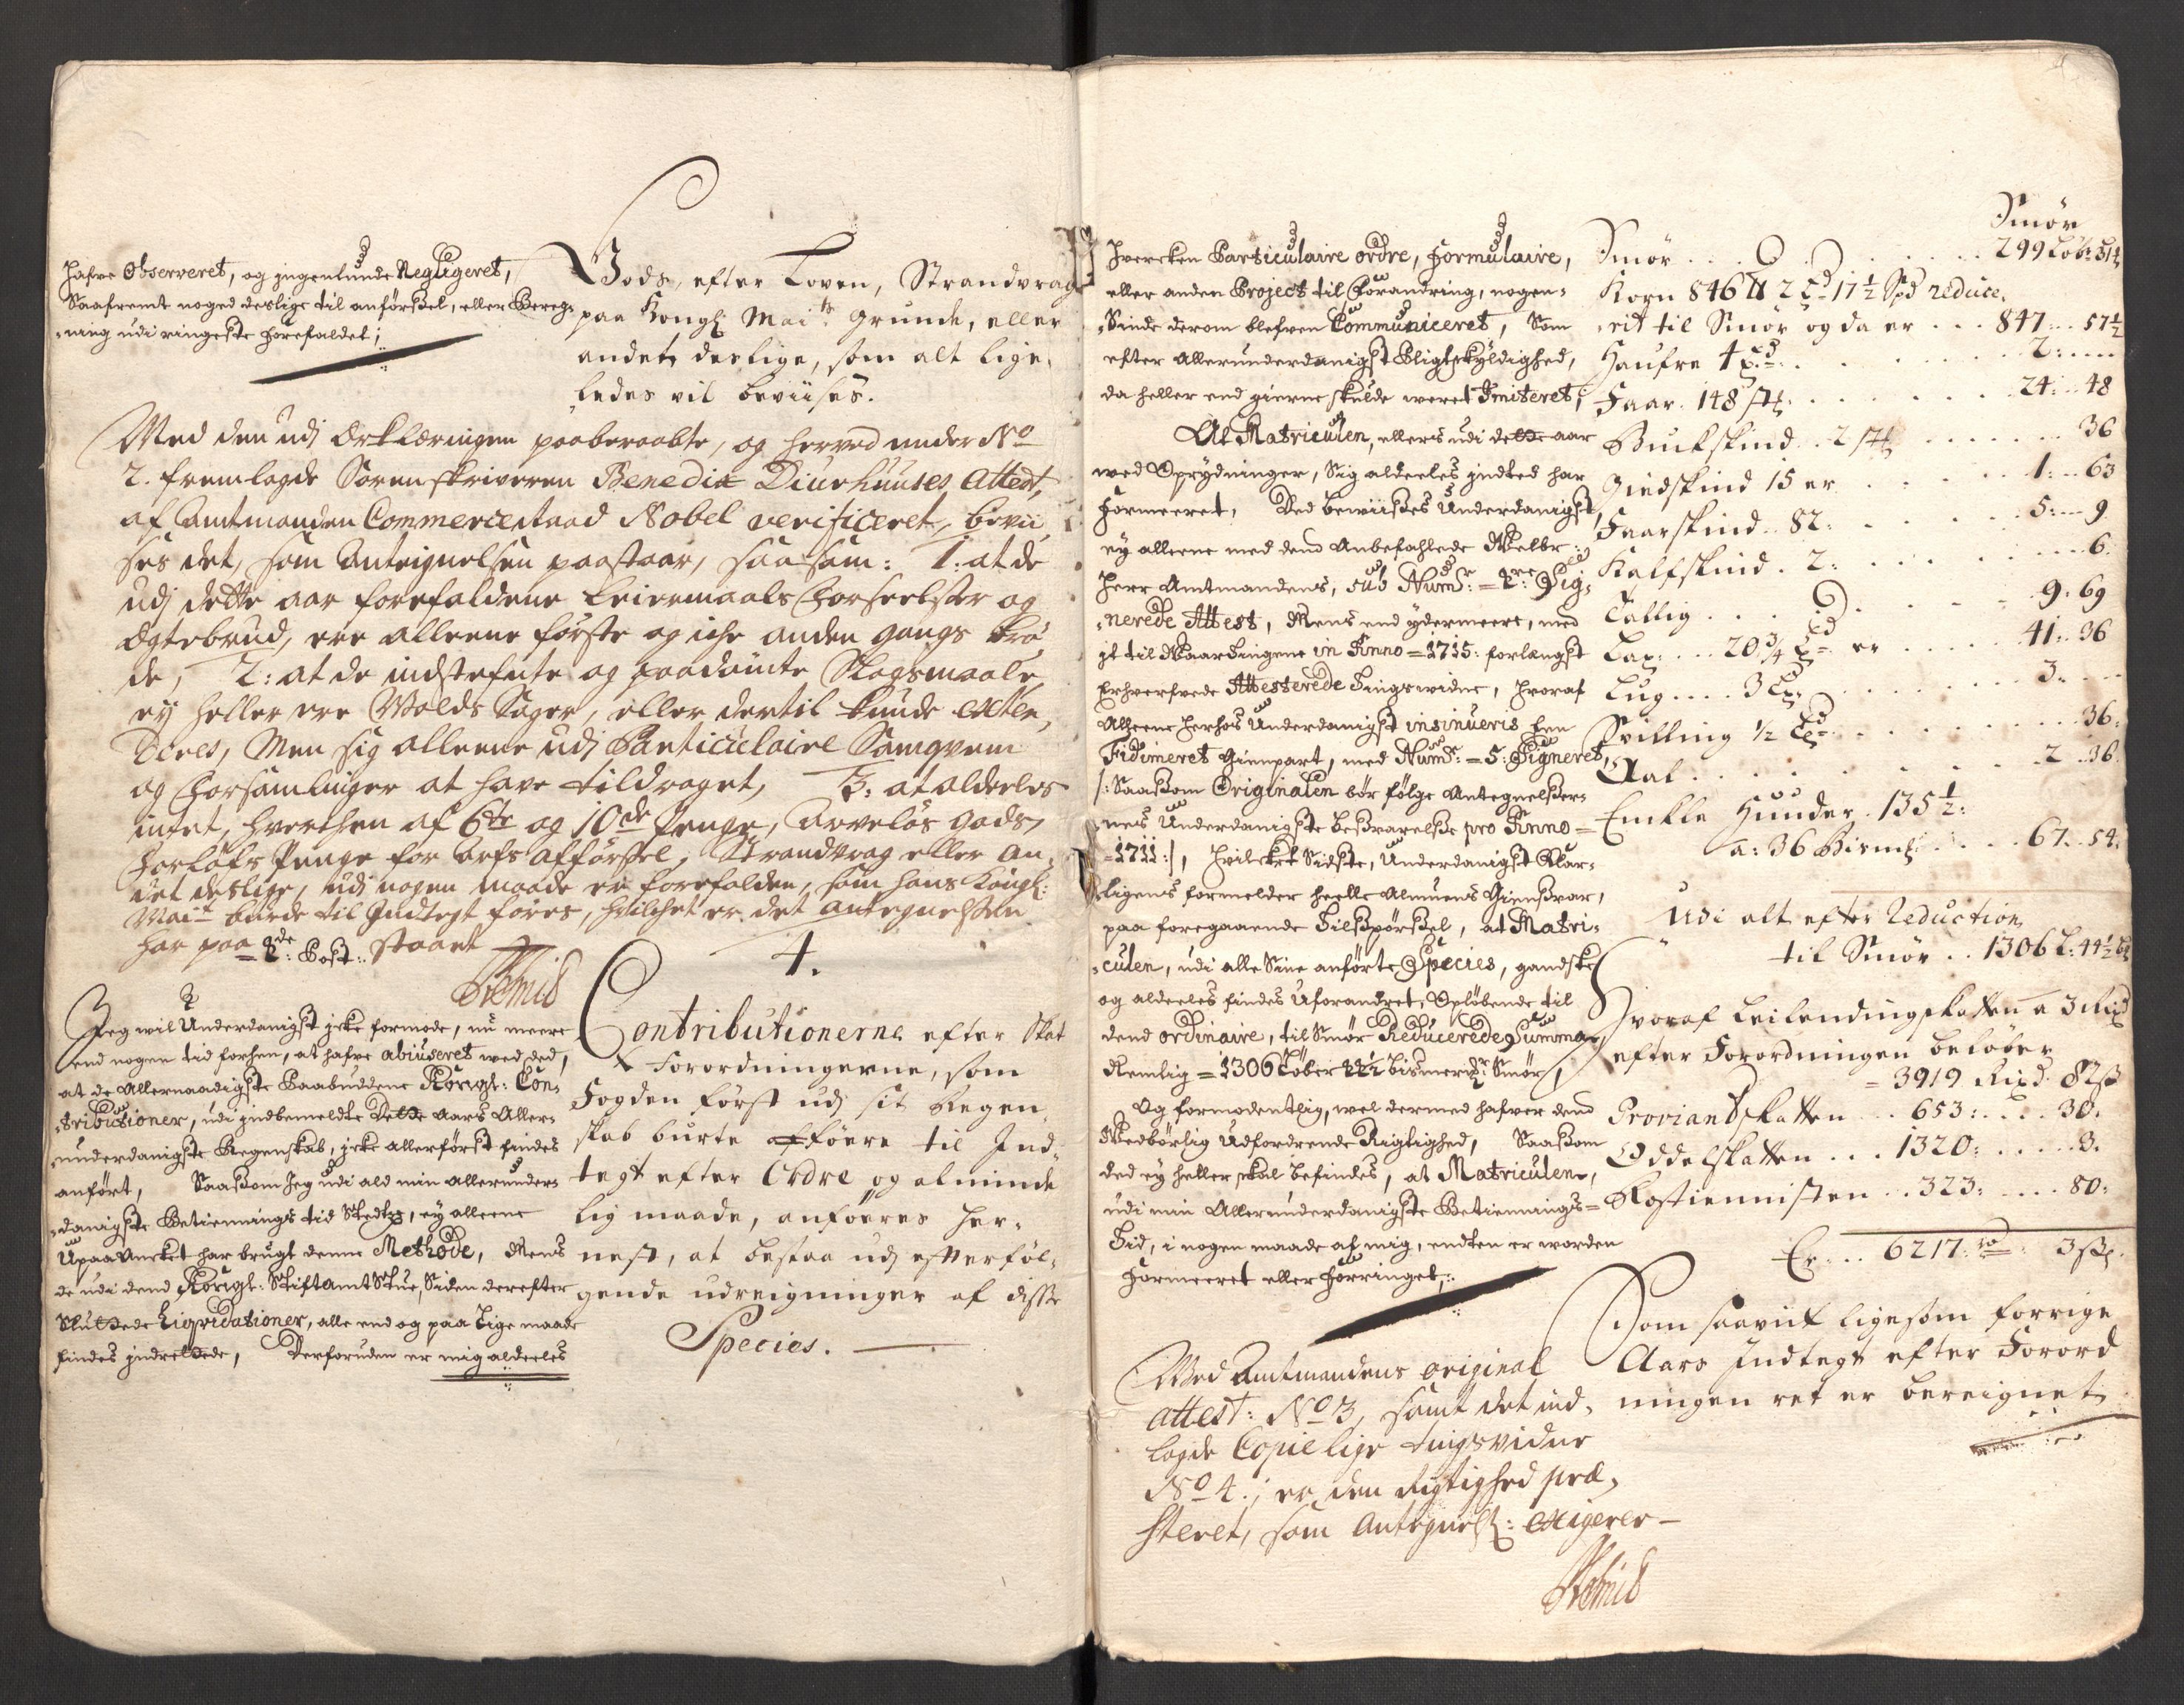 hafve observeret, og ingenlunde Negligeret,
Saafremt noged deslige til anførßel, eller Bereg-
ning udi ringeste forefaldet;
Gods, efter Loven, Strandvrag
paa Kongl Maits grunde, eller
andet deslige, som alt lige-
ledes vil beviises.
Med den udj Erklæringen paaberaabte, og herved under No
2. fremlagde Sorenskriveren Benedix Diurhuuses Attest,
af Amtmanden Commerceraad Nobel verificeret, bevii-
ses det, som Anteignelsen paastaar, saasom: 1: at de
udj dette aar forefaldene Leiermaals Forseelser og
Egtebrud, ere alleene første og iche anden gangs brø-
de, 2: at de indstefnte og paadømte Slagsmaale
ey heller ere Volds Sager, eller dertil kunde exten-
deres, Men sig alleene udj Particulaire Samqvem
og Forsamlinger at have tildraget, 3: at alderles
intet, hverchen af 6te og 10de penge, Arveløs gods,
Forlofs Penge for Arfs afførsel, Strandvrag eller an-
det deslige, udj nogen maade er forefalden, som hans Kongl:
Maits burde til Indtegt føres, hvilchet er det antegnelsen
har paa 2de: Post: staaet
4.
Jeg wil Underdanigst icke formode, nu meere
end nogen tid forhen, at hafve abiuseret wed ded,
at de Allernaadigste Paabuddene Kongl: Con-
tributioner, udi indbemeldte Dette Aars Aller-
underdanigste Regenskab, icke allerførst findes
anført, Saaßom Jeg udi ald min allerunder-
danigste Betiennings tid Stedtze, ey alleene
Upaaancket har brugt denne Methode, Mens
de udi dend Kongl: StiftamtStue, Siden derefter
Sluttede Liqvidationer, alle end og paa Lige maade
findes indrettede, Derforuden er mig aldeeles
Contributionerne efter Skat
Forordningerne, som
Fogden først udj sit Regen-
skab burte føere til Ind-
tegt efter Ordre og alminde
lig maade, anføeres her-
nest, at bestaa udj efterføl-
gende udreigninger af disse
Species.
hvercken Particulaire ordre, Formulaire,
eller anden Project til Forandring, nogen-
Sinde derom blefven Communiceret, Som
efter Allerunderdanigst Pligtskyldighed,
da heller end gierne skulde weret Imiteret;
At Matriculen, ellers udi dette aar
wed Oprydninger, Sig aldeeles indted har
Formeeret, Ded bewiißes Underdanigst,
ey alleene med dend Anbefahlede Welbr:
Herr Amtmandens, sub Numr: = 2: Sig-
nerede Attest, Mens end ydermeere, med
it til Waartingene in Anno = 1715: forlængst
Erhverfvede Attesterede Tingswidne, hvoraf
Alleene herhos Underdanigst insinueris Een
Fidimeret Gienpart, med Numr: = 5: Signeret,
/: Saaßom Originalen bør følge Antegnelßer-
nes Underdanigste beßvarelße pro Anno =
= 1711:/, hvilcket Sidste, Underdanigst Klar-
ligens formelder heelle Almuens Gienßvar,
paa foregaaende Tilßpørßel, at Matri-
culen, udi alle Sine anførte Species, gandske
og aldeeles findes Uforandret, Opløbende til
dend ordinaire, til Smør Reducerede Summa,
Nemlig = 1306 Løber 44½ bismerpd: Smør,
Og formodentlig, wel dermed hafver dend
Wedbørlig Udfordrende Rigtighed, Saaßom
ded ey heller skal befindes, at Matriculen,
udi min Allerunderdanigste Betiennings-
Tid, i nogen maade af mig, endten er worden
Formeeret eller Forringet;
Med Amtmandens original
attest: No 3, samt det ind-
lagde Copielige tingsvidne
No 4:, er den Rigtighed præ-
steret, som Antegnels: exigerer
Smør
Smør . . . . 299 Løb: 31½
Korn 846 2 17½ Spd reduce-
rit til Smør og da er . . . 847: . . 57½
Haufre 4 . . . 2: . . .
Faar. 148 . . . 24: . . 48
Buckskind . . 2 . . . 36
Giedskind 15 er . . . 1: . . 63
Faarskind . . 82: . . . 5: . . 9
Kalfskind . 2: . . . 6.
Tallig . . . 9: 69
Lax: . . . 20¾ er . . . 41: . 36
Lug . . . . 3 . . . 3. . . .
Spilling ½ . . . 36:
Aal . . . 2 . . 36
Enckle Hunder. 135½:
a: 36 Bisml . . . 67. . 54.
Udi alt efter Reduction
til Smør . . 1306 L: 44½
hvoraf Leilendingskatten a 3
efter Forordningen beløber
= 3919 Rixd. 82s
Proviantskatten . . 653: . . . 30.
Oddelskatten . . . 1320: . . . . 3.
Rostiennisten . . 323: . . . . 80:
Er . . . 6217: . . 3
Som saaviit ligesom forrige
Aars Indtegt efter Forord
ningen ret er bereignet